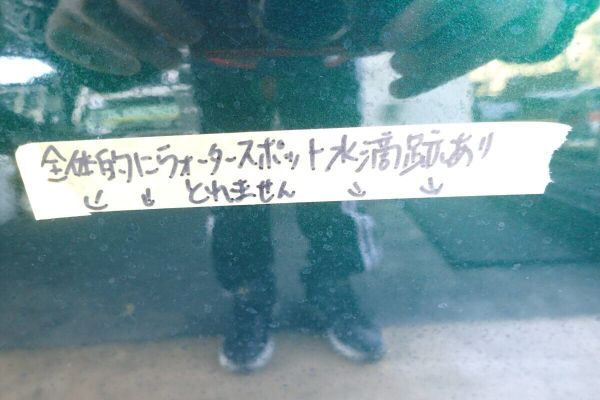 全体的にウォータースポット水滴跡あり
↓ ↓ とれません ↓ ↓